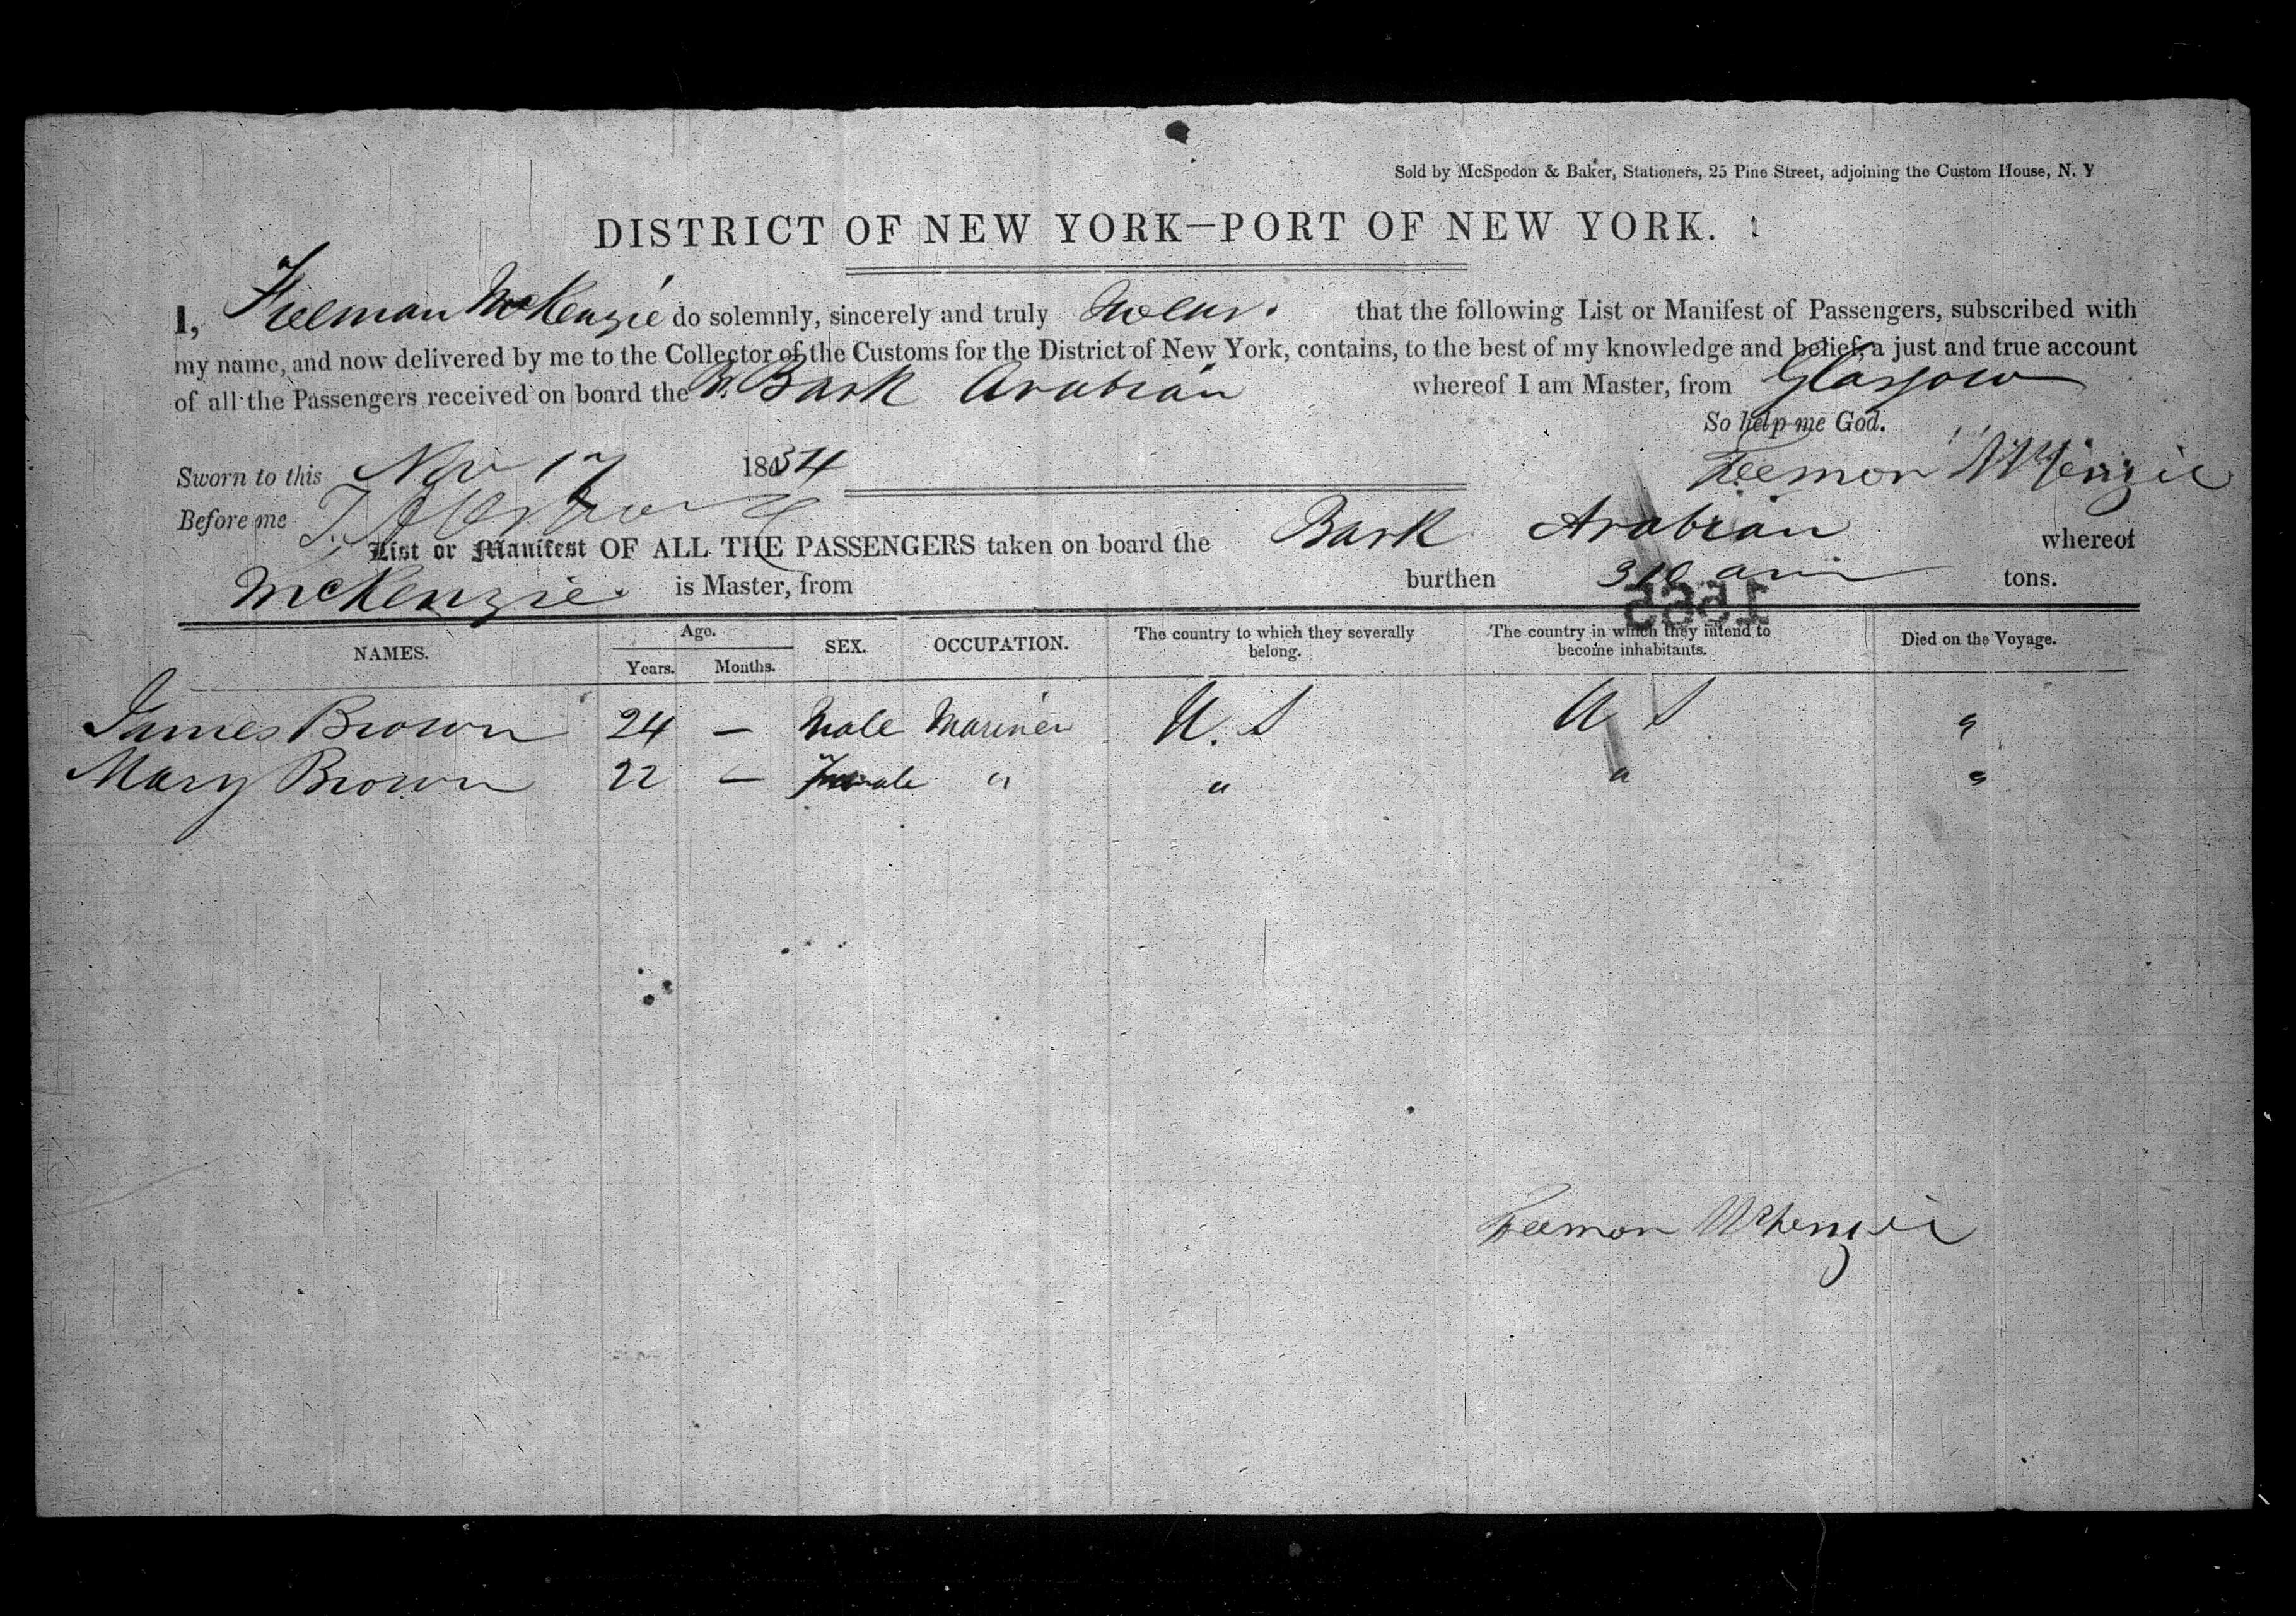 Sold by McSpedon & Baker, Stationers, 25 Pine Street, adjoining the Custom House, N. Y
DISTRICT OF NEW YORK—PORT OF NEW YORK.
I, Freeman McKenzie do solemnly, sincerely and truly swear. that the following List or Manifest of Passengers, subscribed with
my name, and now delivered by me to the Collector of the Customs for the District of New York, contains, to the best of my knowledge and belief, a just and true account
of all the Passengers received on board the Bark Arabian whereof I am Master, from Glasgow
So help me God.
Sworn to this Nov 17 1854 Freemon McKenzie
Before me
List or Manifest OF ALL THE PASSENGERS taken on board the Bark Arabian whereof
McKenzie. is Master, from burthen 310 tons.
1565
NAMES. Age. Years. Months. SEX. OCCUPATION. The country to which they severally belong. The country in which they intend to become inhabitants. Died on the Voyage.
James Brown 24 — Male Mariner U. S U S "
Mary Brown 22 — Female " " " "
Freemon McKenzie